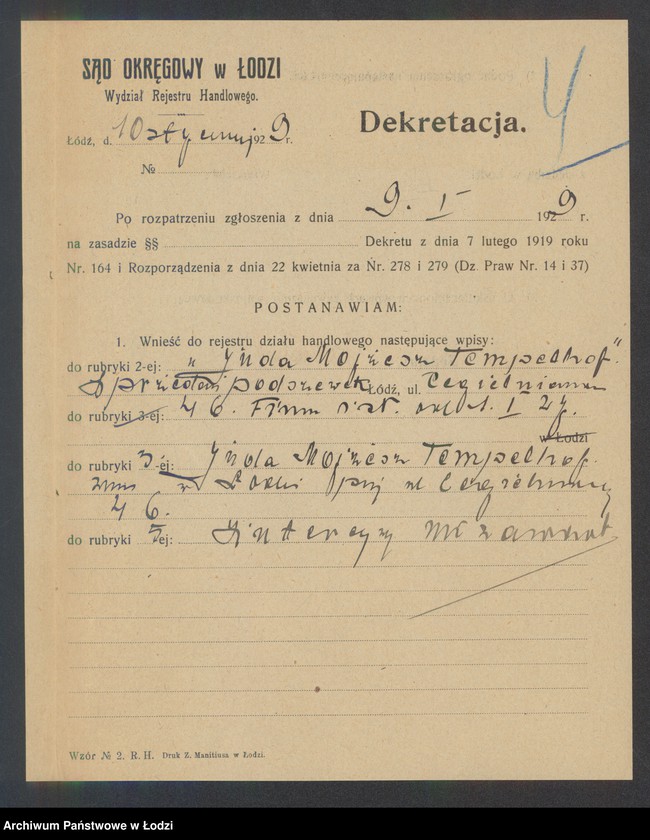 SĄD OKRĘGOWY w ŁODZI
Wydział Rejestru Handlowego.
4
Dekretacja.
Łódź, d. 10 stycznia 1929 r.
№
Po rozpatrzeniu zgłoszenia z dnia 9. I 1929 r.
na zasadzie §§ Dekretu z dnia 7 lutego 1919 roku
Nr. 164 i Rozporządzenia z dnia 22 kwietnia za Nr. 278 i 279 (Dz. Praw Nr. 14 i 37)
POSTANAWIAM:
1. Wnieść do rejestru działu handlowego następujące wpisy:
do rubryki 2-ej: „Jüda Mojżesz Tempelhof"
Sprzedaż podszewek Łódź, ul. Cegielniana
do rubryki 3-ej: 46. Firma od I 27.
w Łodzi
do rubryki 3-ej: Jüda Mojżesz Tempelhof.
zam w Łodzi przy ul Cegielnianej
46.
do rubryki 5ej: Intercyzy nie zawarł
Wzór № 2. R. H. Druk Z. Manitiusa w Łodzi.
Archiwum Państwowe w Łodzi